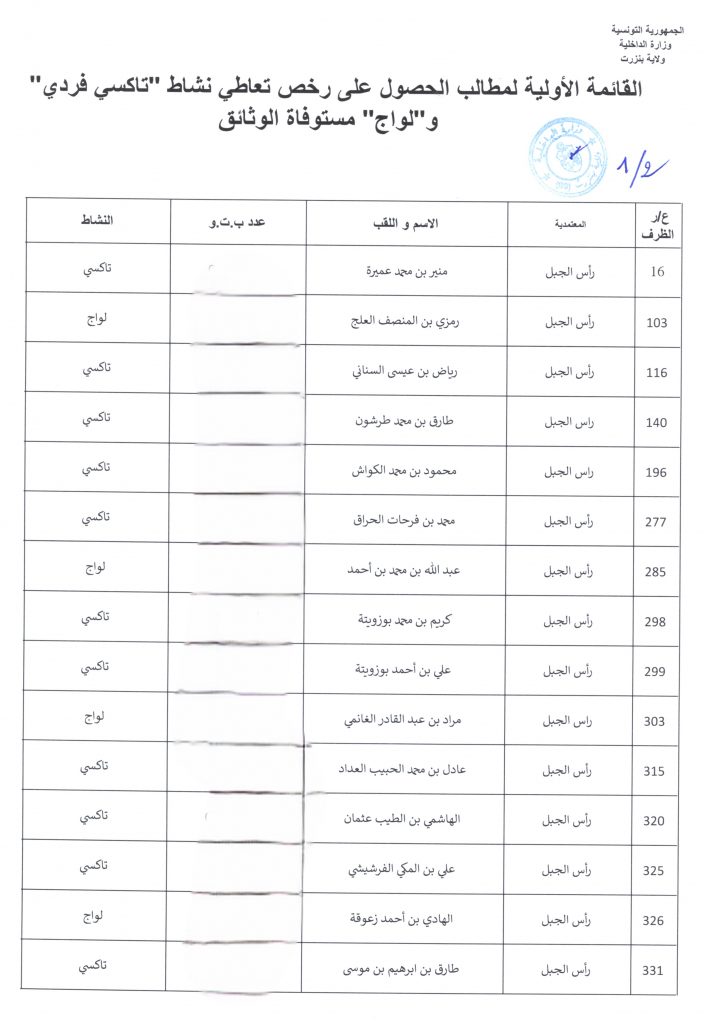 الجمهورية التونسية
وزارة الداخلية
ولاية بنزرت
القائمة الأولية لمطالب الحصول على رخص تعاطي نشاط "تاكسي فردي"
و"لواج" مستوفاة الوثائق
1/2
ع/ر الظرف المعتمدية الاسم و اللقب عدد ب.ت.و النشاط
16 رأس الجبل منير بن محمد عميرة تاكسي
103 رأس الجبل رمزي بن المنصف العلج لواج
116 رأس الجبل رياض بن عيسى السناني تاكسي
140 راس الجبل طارق بن محمد طرشون تاكسي
196 راس الجبل محمود بن محمد الكواش تاكسي
277 رأس الجبل محمد بن فرحات الحراق تاكسي
285 رأس الجبل عبد الله بن محمد بن أحمد لواج
298 رأس الجبل كريم بن محمد بوزويتة تاكسي
299 رأس الجبل علي بن أحمد بوزويتة تاكسي
303 راس الجبل مراد بن عبد القادر الغانمي لواج
315 رأس الجبل عادل بن محمد الحبيب العداد تاكسي
320 رأس الجبل الهاشمي بن الطيب عثمان تاكسي
325 رأس الجبل علي بن المكي الفرشيشي تاكسي
326 رأس الجبل الهادي بن أحمد زعوقة لواج
331 رأس الجبل طارق بن ابرهيم بن موسى تاكسي